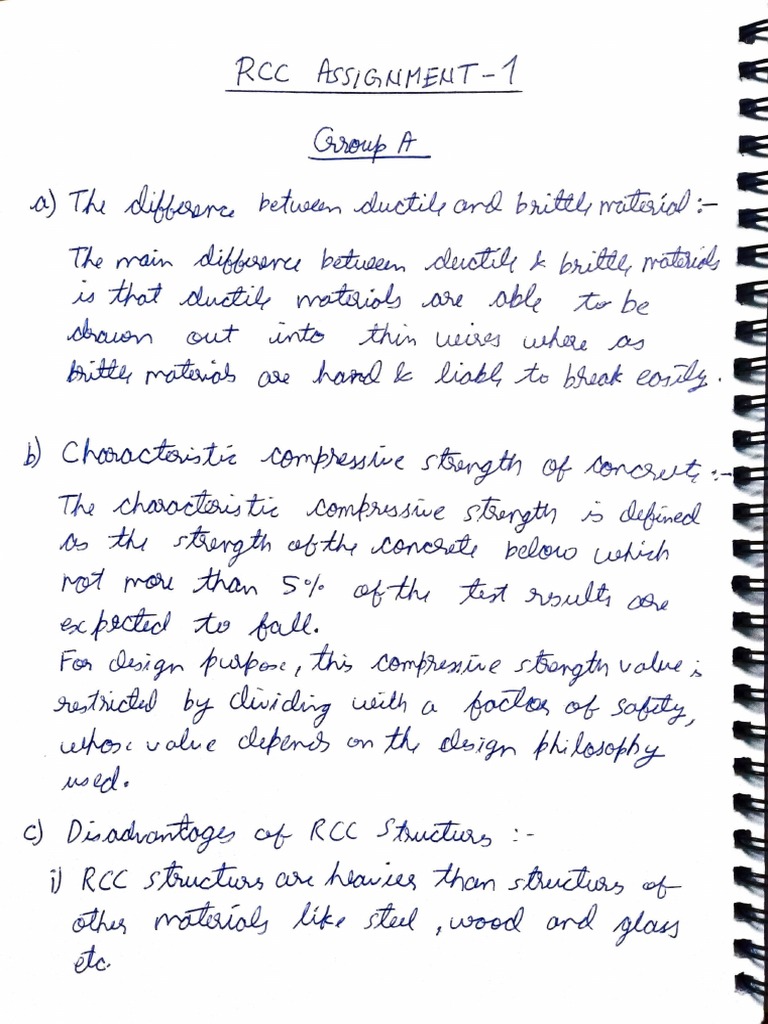 RCC ASSIGNMENT-1
Group A
a) The difference between ductile and brittle material :-
The main difference between ductile & brittle materials
is that ductile materials are able to be
drawn out into thin wires where as
brittle materials are hard & liable to break easily.
b) Characteristic compressive strength of concrete :-
The characteristic compressive strength is defined
as the strength of the concrete below which
not more than 5% of the test results are
expected to fall.
For design purpose, this compressive strength value is
restricted by dividing with a factor of safety,
whose value depends on the design philosophy
used.
c) Disadvantages of RCC Structures :-
i) RCC structures are heavier than structures of
other materials like steel, wood and glass
etc.